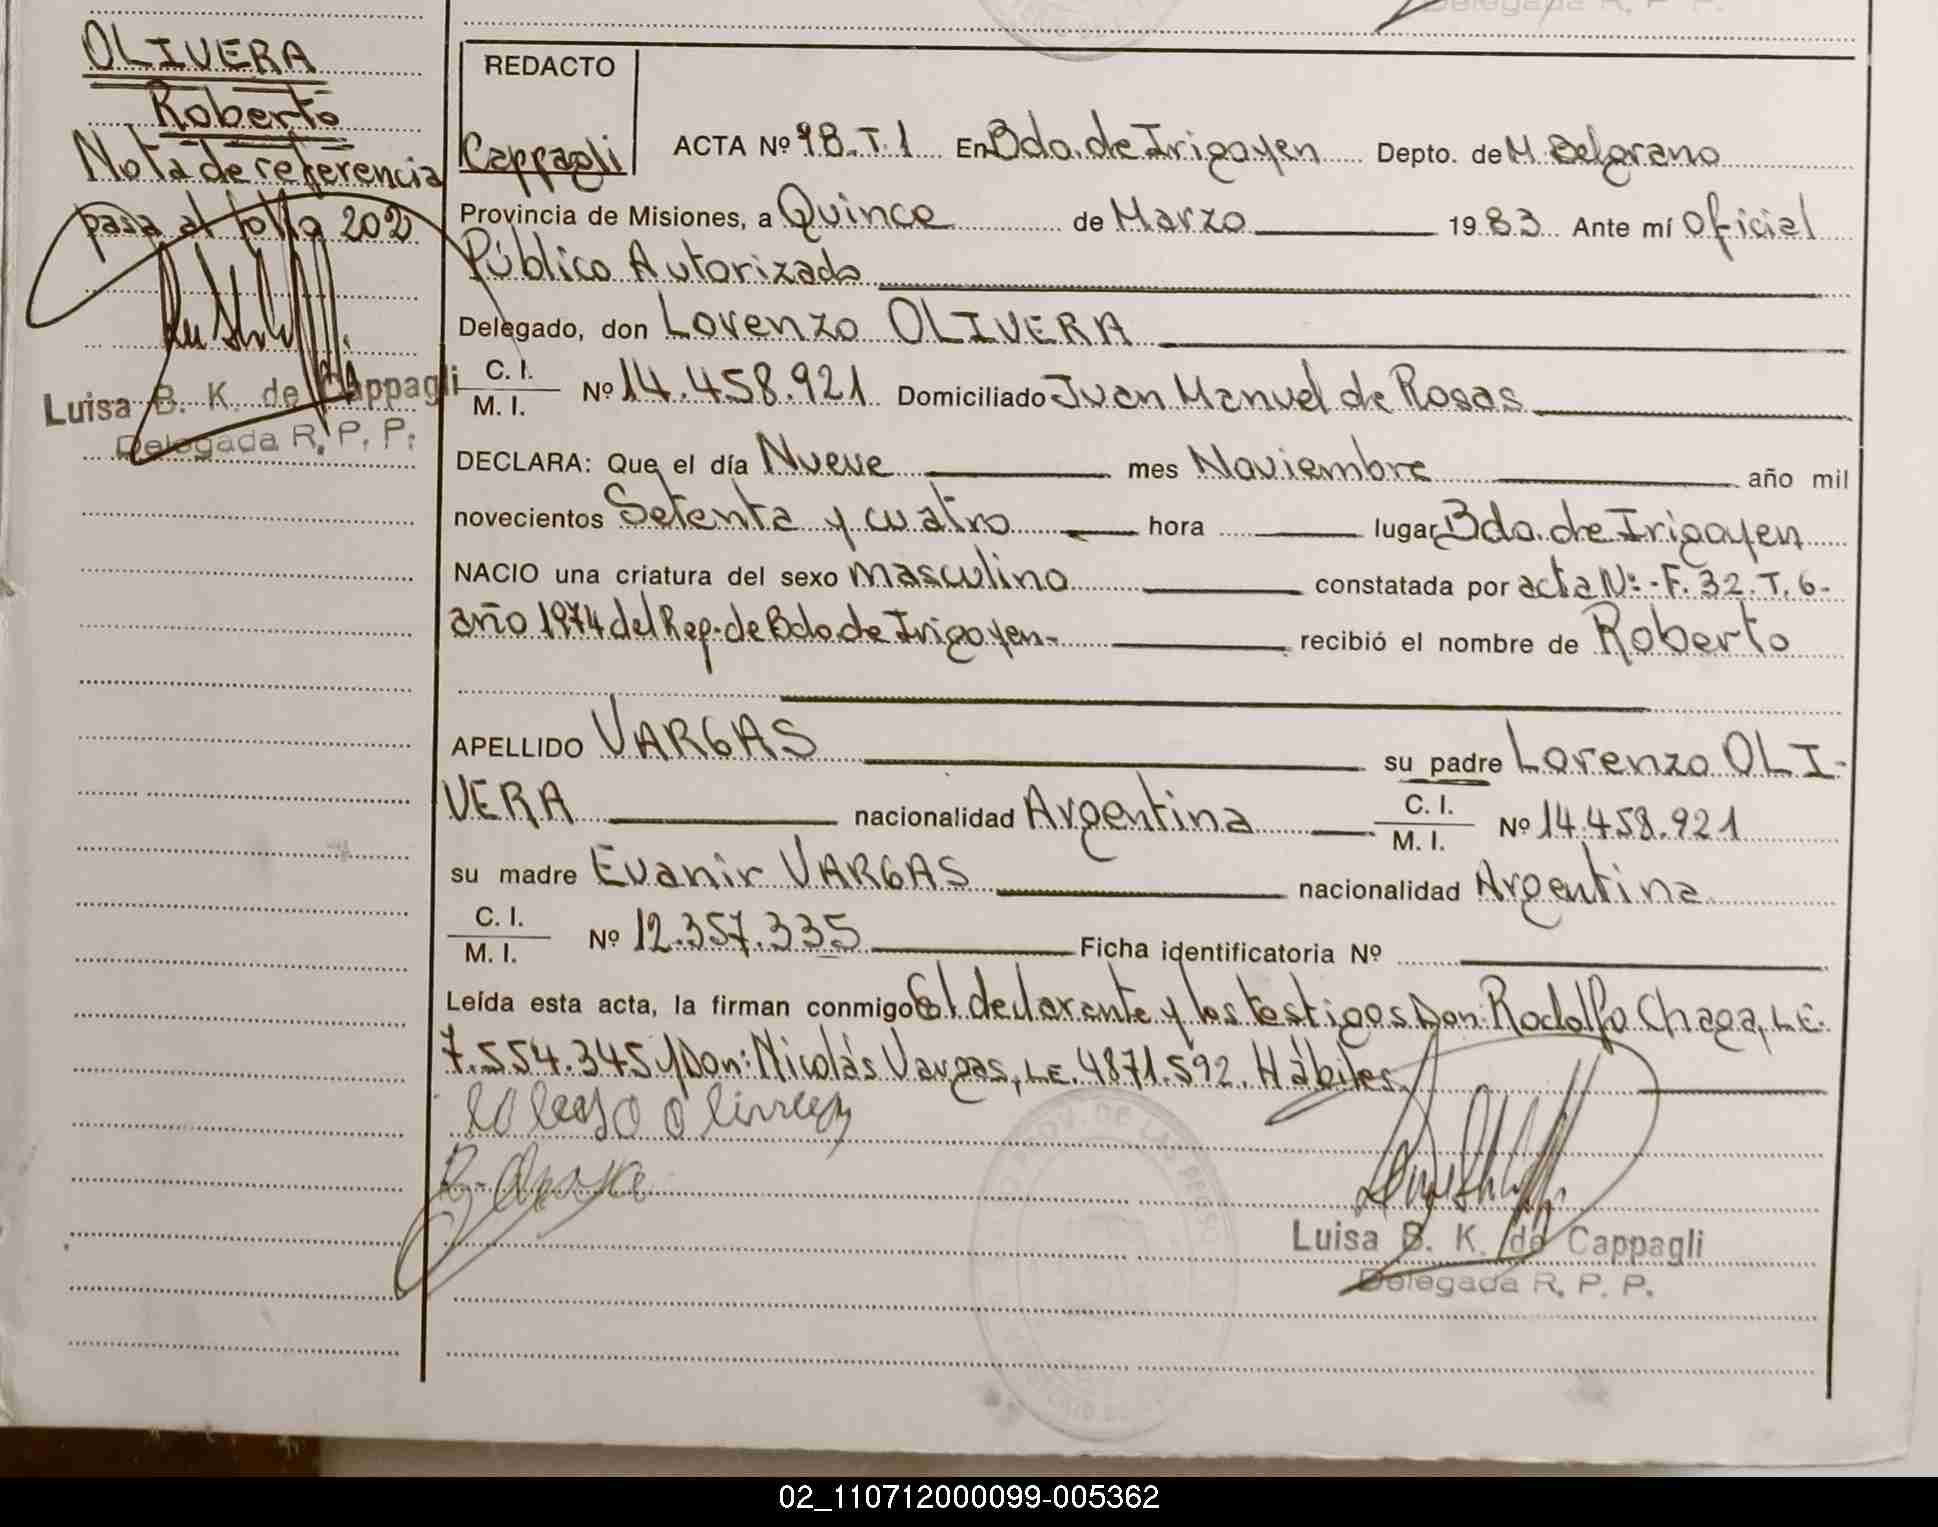 OLIVERA
Roberto
Nota de referencia
pasa al folio 202
Luisa B. K. de Cappagli
Delegada R. P. P.
Delegada R. P. P.
REDACTO
Cappagli
ACTA Nº 98.T.1 En Bdo. de Irigoyen Depto. de M. Belgrano
Provincia de Misiones, a Quince de Marzo 1983 Ante mí Oficial
Público Autorizado
Delegado, don Lorenzo OLIVERA
C. I.
M. I. Nº 14.458.921 Domiciliado Juan Manuel de Rosas
DECLARA: Que el día Nueve mes Noviembre año mil
novecientos Setenta y cuatro hora lugar Bdo. de Irigoyen
NACIO una criatura del sexo masculino constatada por acta Nº:-F.32.T.6-
año 1974 del Reg. de Bdo. de Irigoyen- recibió el nombre de Roberto
APELLIDO VARGAS su padre Lorenzo OLI-
VERA nacionalidad Argentina C. I. M. I. Nº 14.458.921
su madre Evanir VARGAS nacionalidad Argentina
C. I.
M. I. Nº 12.357.335 Ficha identificatoria Nº
Leída esta acta, la firman conmigo El declarante y los testigos Don: Rodolfo Chaga, L.E.
7.554.345 y Don: Nicolás Vargas, L.E. 4871.592. Hábiles.
Luisa B. K. de Cappagli
Delegada R. P. P.
02_110712000099-005362